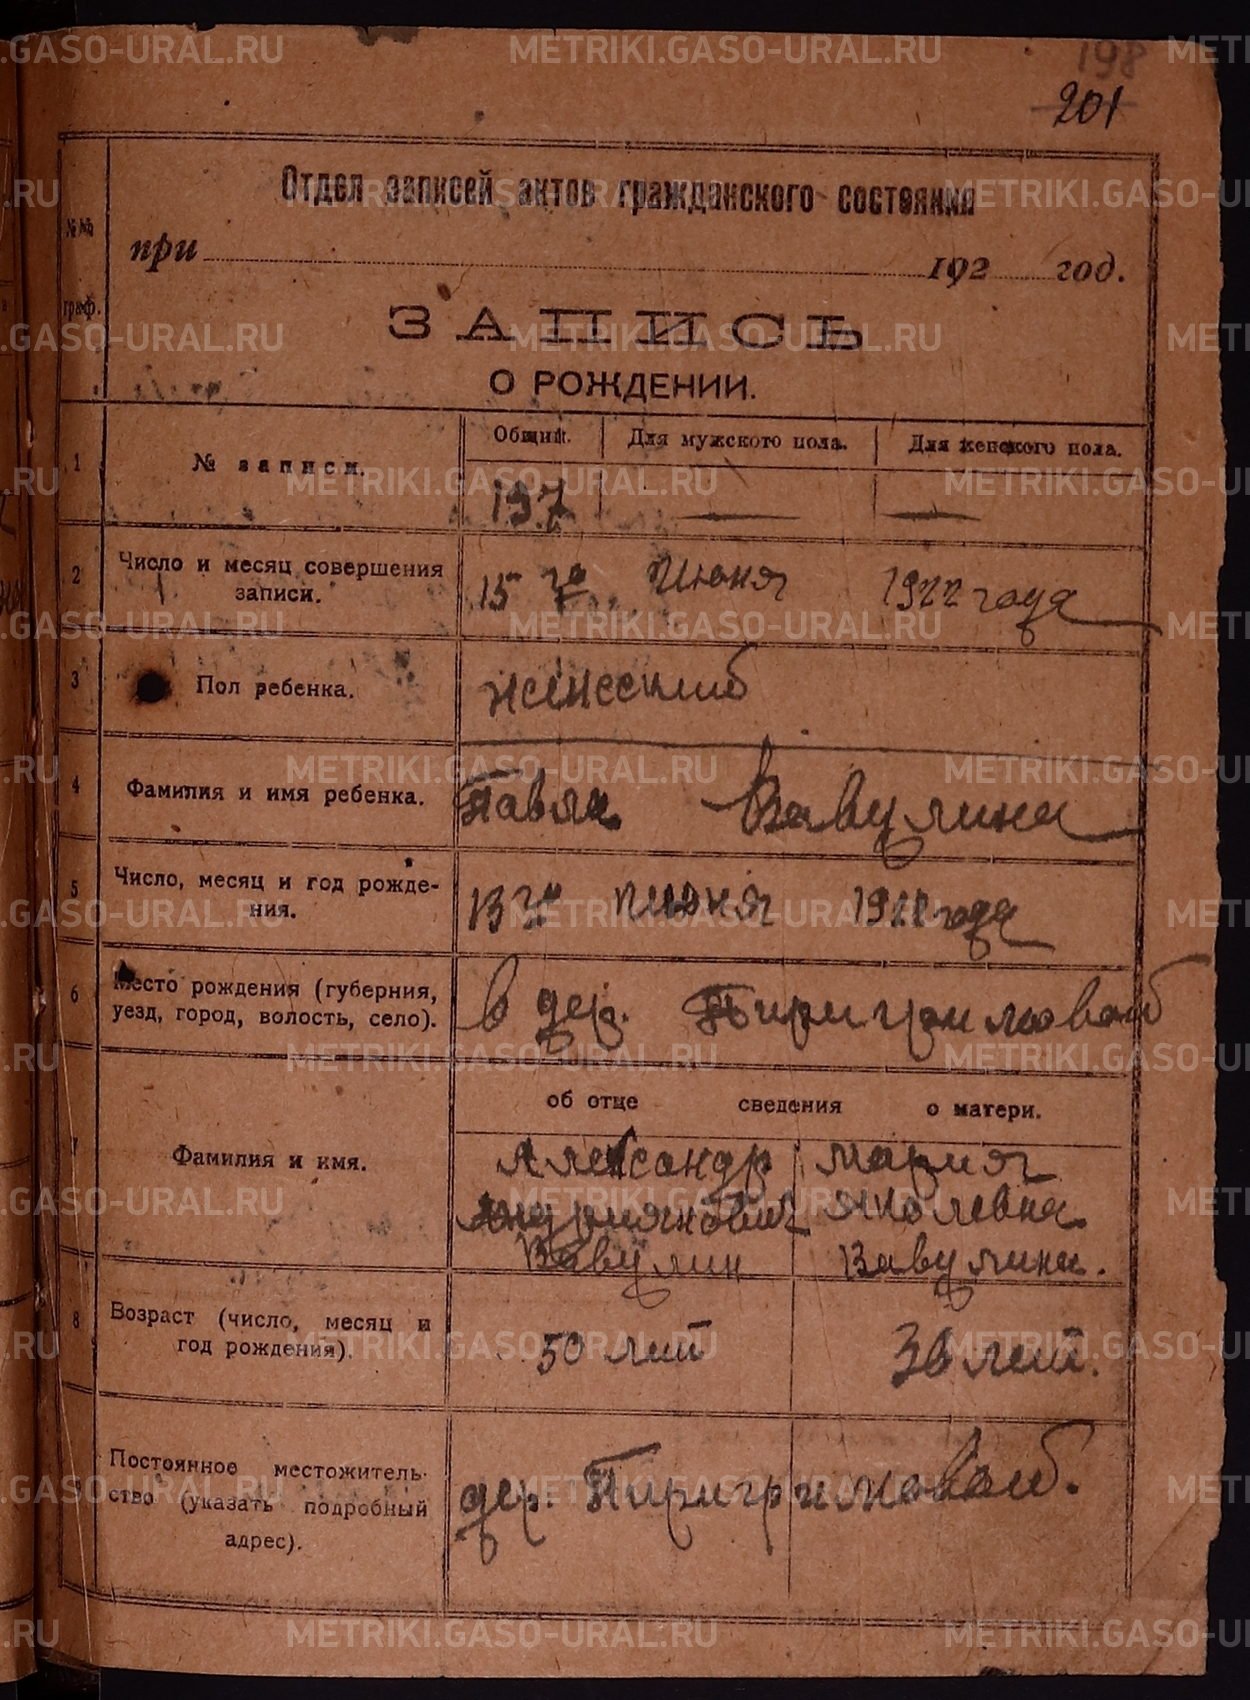 198
201
Отдел записей актов гражданского состояния
№№ граф.
при 192 год.
ЗАПИСЬ
О РОЖДЕНИИ.
Общий. Для мужского пола. Для женского пола.
1 № записи. 197 — —
2 Число и месяц совершения
записи.
15 го Июня 1922 года
3 Пол ребенка. женский
4 Фамилия и имя ребенка. Павла Вавулина
5 Число, месяц и год рожде-
ния.
13 го Июня 1922 года
6 Место рождения (губерния,
уезд, город, волость, село).
в дер.
об отце сведения о матери.
7 Фамилия и имя.
Александр Мария
Андриянович Яковлевна
Вавулин Вавулина.
8 Возраст (число, месяц и
год рождения).
50 лет 36 лет.
Постоянное местожитель-
ство (указать подробный
адрес).
дер.
METRIKI.GASO-URAL.RU